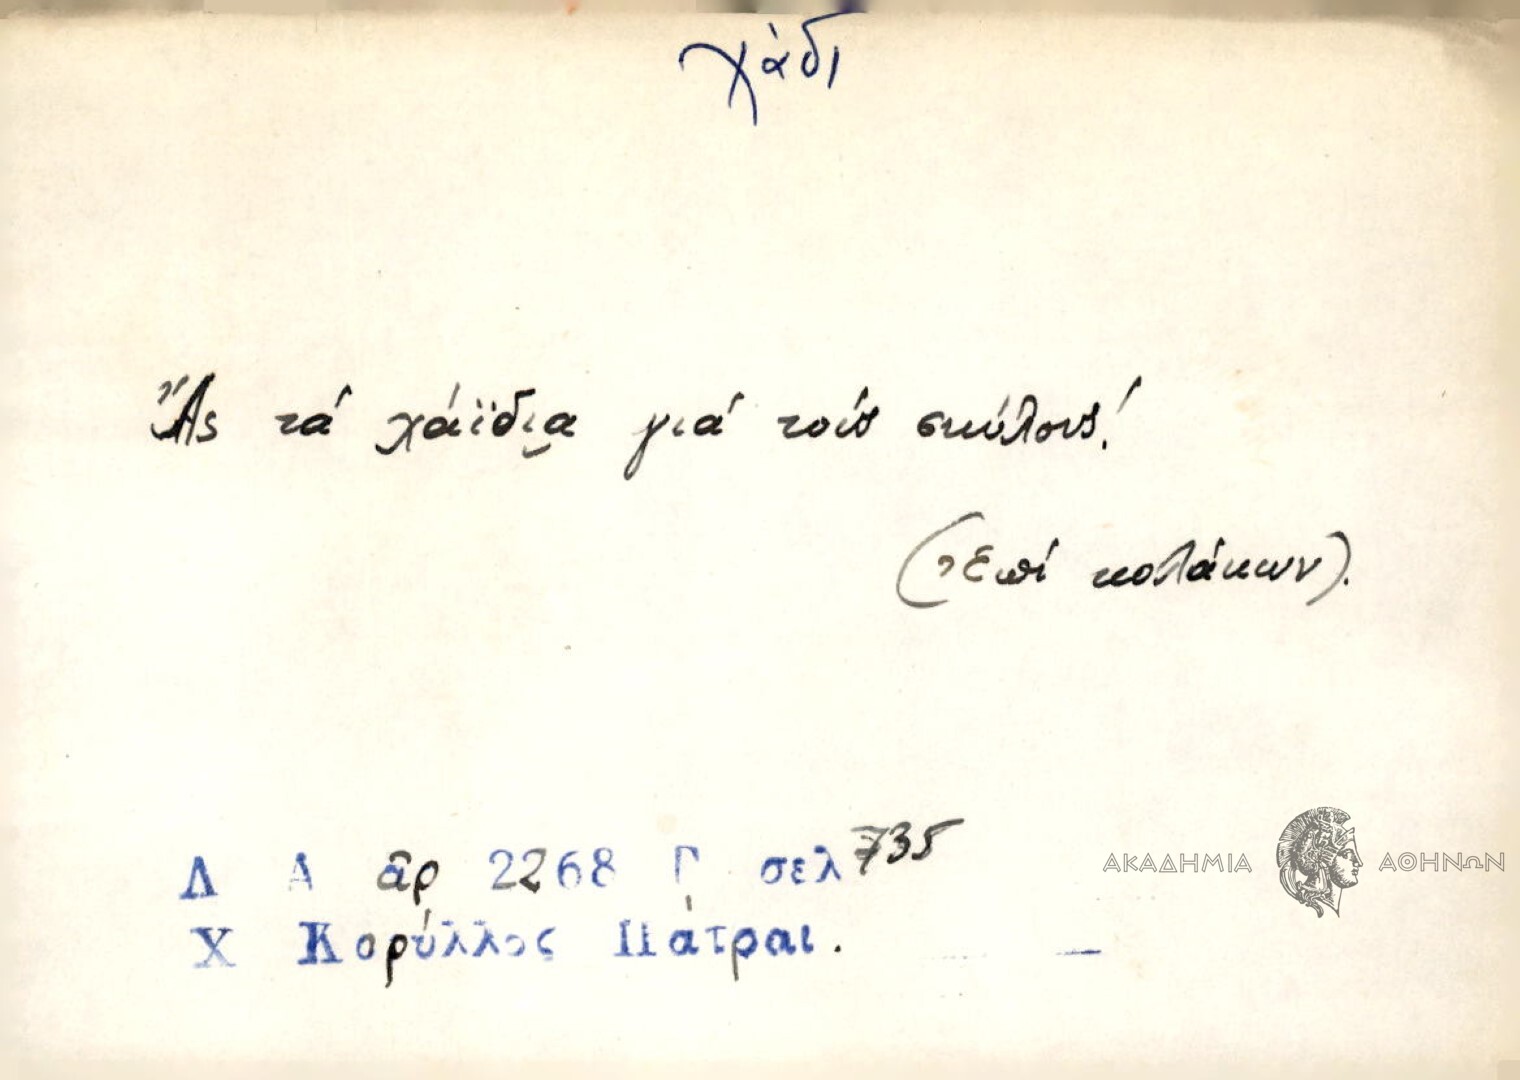 χάδι
Ἄς τά χάϊδια γιά τούς σκύλους!
(Ἐπί κολάκων).
Λ Α ἀρ 2268 Γ σελ 735
ΑΚΑΔΗΜΙΑ ΑΘΗΝΩΝ
Χ Κορύλλος Πάτραι.